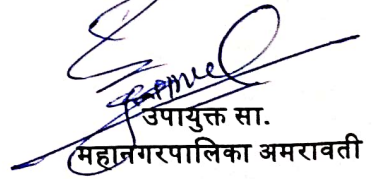 उपायुक्त सा.
महानगरपालिका अमरावती